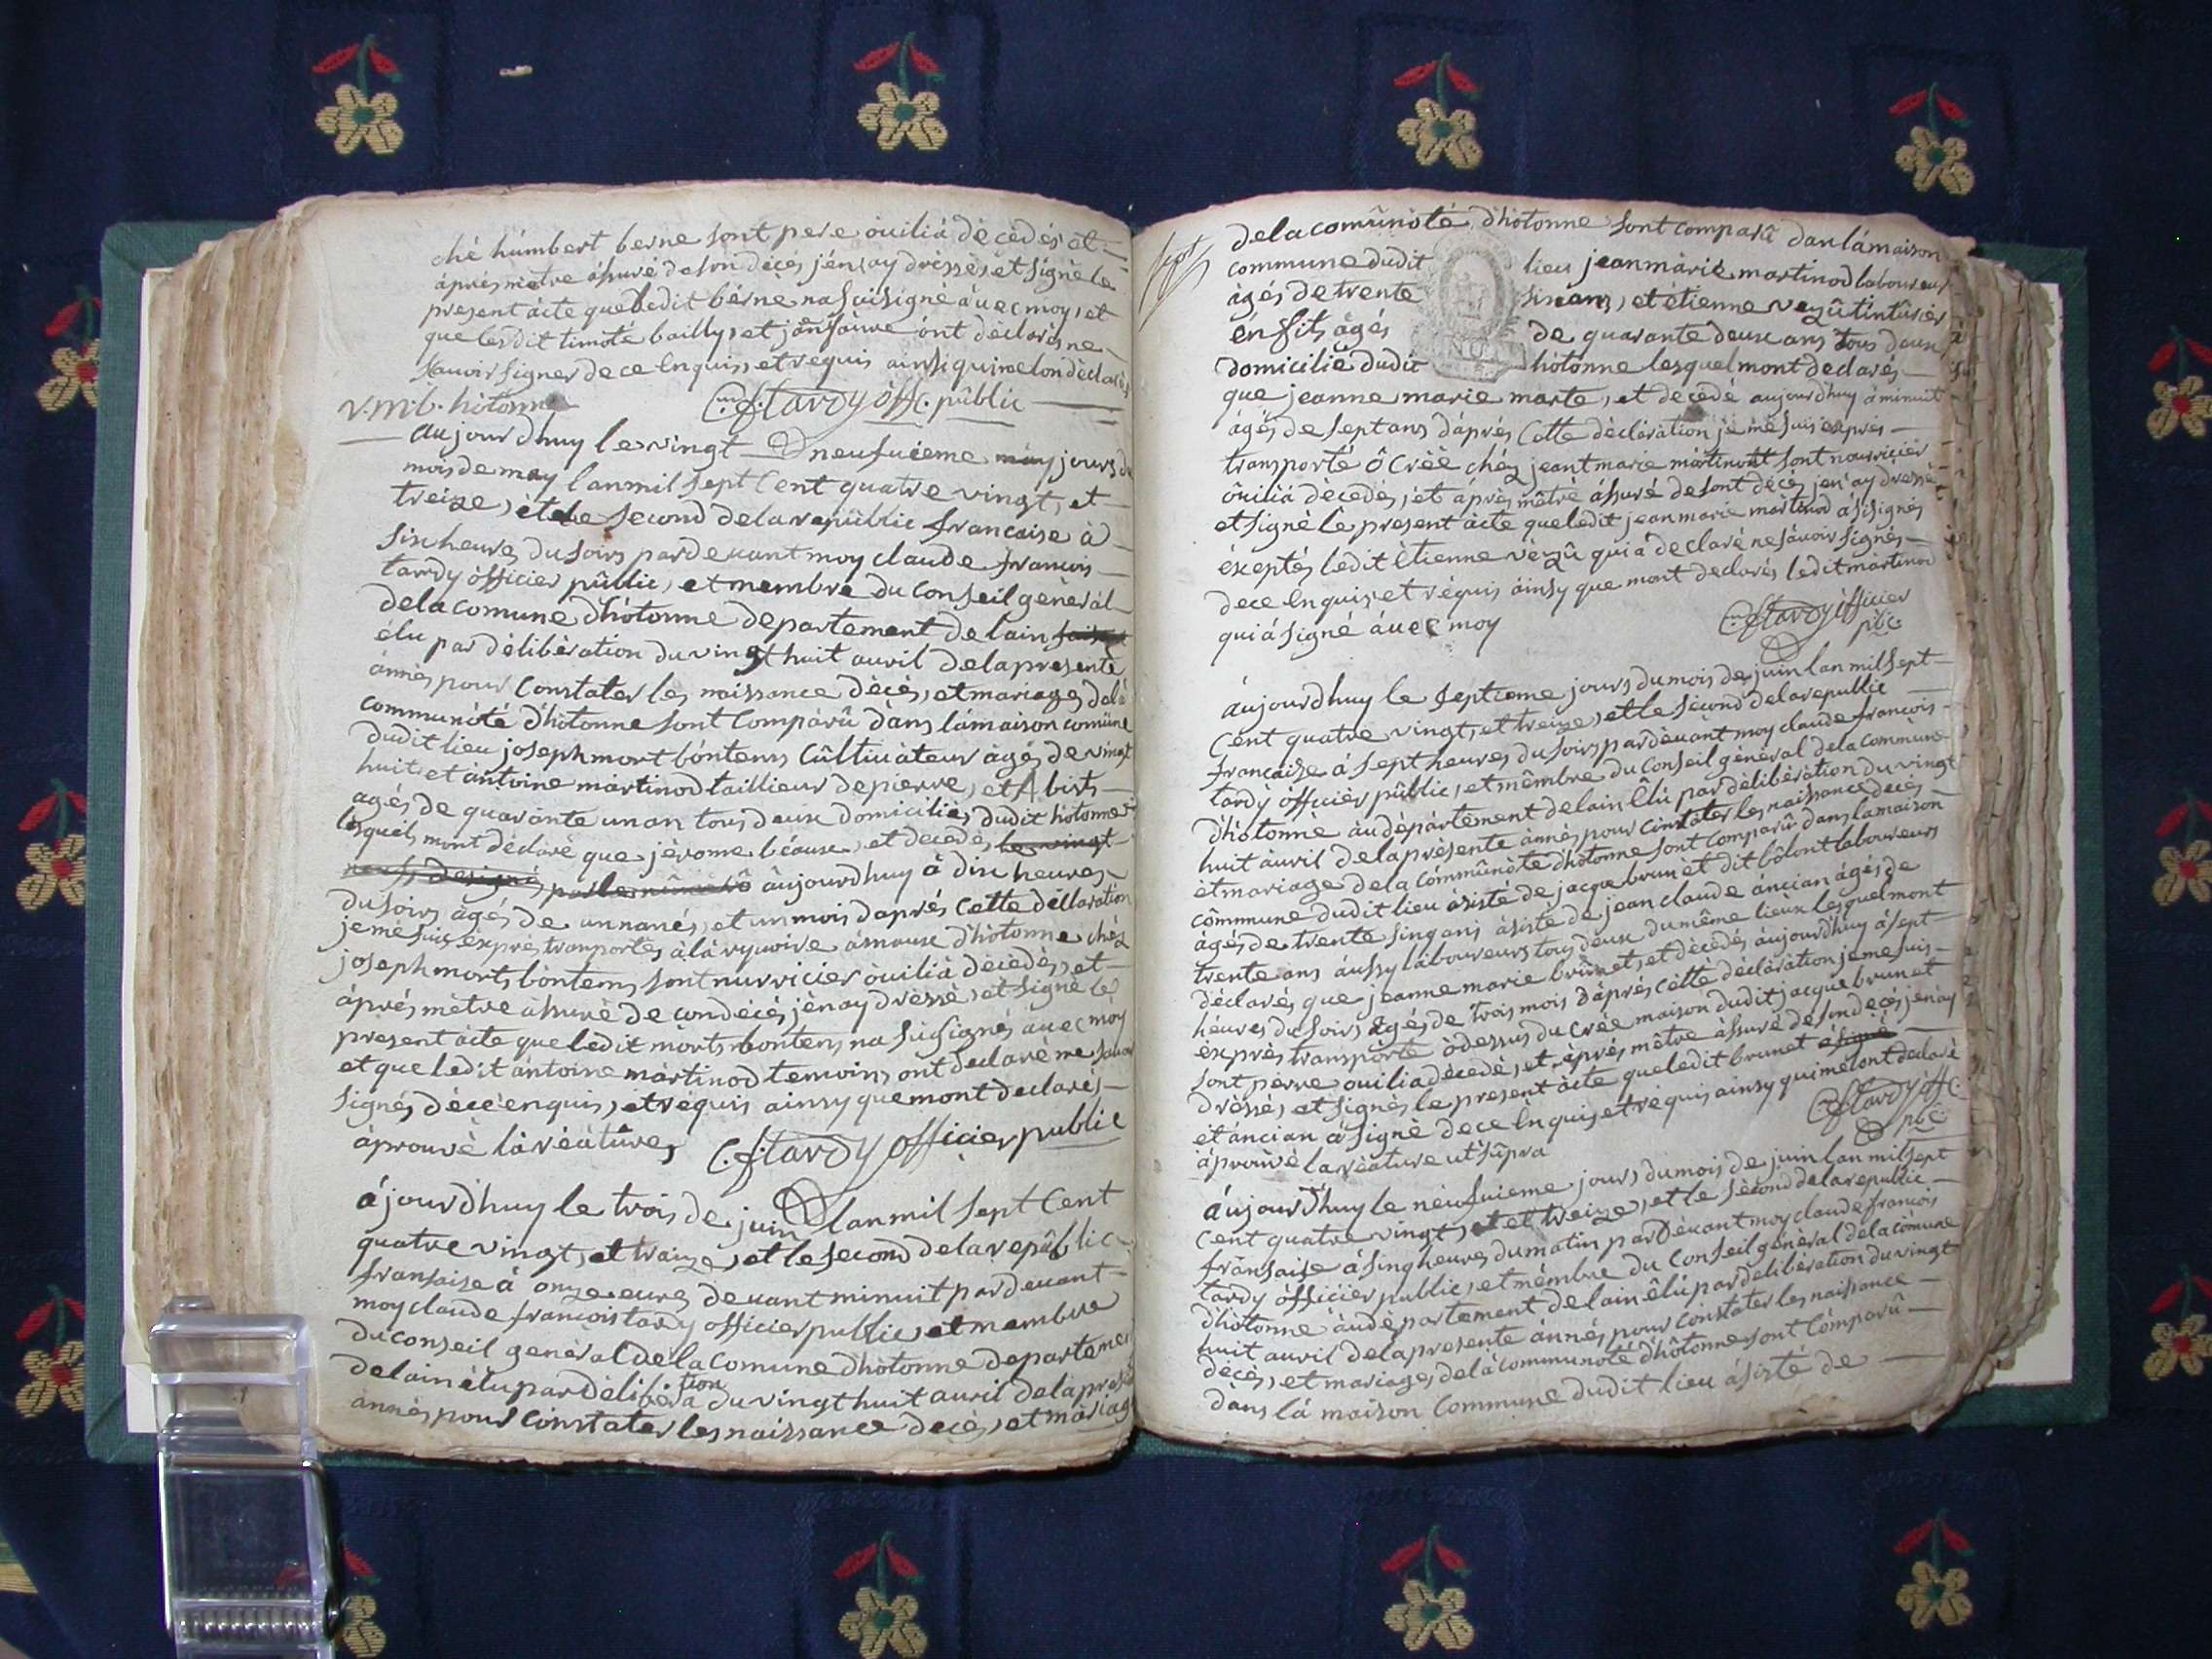 ché humbert berne sont pere òuilià dècèdés at
áprés mètre ássuré de son dèces jén ay dressès et signè le
present àcte que ledit bérne na suisignè àuec moy, et
que lesdit timoté bailly, et ont déclarés ne
scauoir signer de ce enquis, et réquis ainssi qui me lon dèclarés
V.m.b. hotonne C. f. tardy off. públic
aujourdhuy le vingt neufuieme jours du
mois de may lanmil sept Cent quatre vingt, et
treize, et le second de la repùblic francaise à
six heures du soirs par deuant moy claude francois
tardy òfficier pùblic, et membre du Conseil gènèràl
dela comune dhòtonne departement de lain
élu par dèlibèration du vingt huit auril de la presente
ánnés pour Constater les naissance dècès, et mariages de là
communòté dhòtonne sont Compárù dàns lá maison comùne
dudit lieu joseph mort bóntems Cùltiuàteur àgés de vingt
huit, et àntoine màrtinod taillieur de pierre, et A bits
agés de quarànte un an tous deux domiciliès dudit hòtonne
lesquels mont dèclaré que jèrome béaux, et decedés le vingt
neufs designé par le numèrô àujourdhuy à dix heures
du soirs àgés de un nanés, et un mois daprés Cette dèclaration
je mè suis èxprés tranportés àlà ryuoire àmaux dhòtonne chés
joseph morts bòntems sont nurricier òuilià décèdès, et
áprés mètre àssurè de con dècés jénay drèssè, et signè le
present àcte que ledit mòrts bontems na suisignés àuec moy
et que ledit ántoine màrtinod temoins ont declaré ne sauoir
signés dè ce enquis, et réquis ainsy que mont declarés
àprouuè là réàtûres C. f. tardy officier public
ájourdhuy le trois de juin lan mil sept Cent
quatre vingt, et traize, et le second de la repûblic
fransaise à onze eures deuant minuit par deuant
moy claude francois tardy officier public, et membre
du conseil genèral de la comune dhòtonne departemen
de lain élu par dèlibèration du vingt huit auril de la prese
ánnés pour Cònstater les naissance decès, et mariag
de la comûnòté dhòtonne sont comparû dan lá maison
commune dudit lieu jean màrie martinod laboureur
àgés de trente six ans, et étienne vezû tintûrier
én fits àgés de quarante deux ans tous deux
domiciliè dudit hòtonne lesquel mont declarés
que jeanne marie marte, et decédé aujourdhuy à minuit
àgés de sept ans dáprés Cette dèclàration je me suis exprés
transporté ô crèé chéz jeant marie màrtinod sont nourricier
ôuilià dècèdés, et áprés mètrè àssuré de sont dèces jen ay dressè
et signè le present àcte que ledit jean marie màrtinod à sisignès
éxeptés ledit étienne vèzû qui a dèclaré ne sàuoir signés
de ce enquis, et réquis áinsy que mont declarés ledit màrtinod
qui á signé áuec moy C. f. tardy officier
pbc.
áujourdhuy le septieme jours du mois de juin lan mil sept
Cent quatre vingt, et treize, et le second de la republic
francaise á sept heures du soirs par dèuant moy claude francois
tardy òfficièr pùblic, et mêmbre du Conseil gènèral de la commùne
dhòtonnè àu dèpàrtement de lain élú par dèlibèration du vingt
huit àuril de la prèsente ánnès pour Constater les naissance dècès
èt mariage de la cómmûnòte dhòtonne sont Comparû dans la maison
commune dudit lieu àsisté de jacque brun èt dit bòlont laboureurs
àgés de trente sing ans àsistè de jean claude áncian àgés de
trente ans áussy làboureurs tous deux du même lièux lesquel mont
dèclarés que jeanne marie brùnet, et dècèdés àujourdhuy à sept
héures du soirs àgés de trois mois dàprés cètté dèclàration je me suis
èxprés transpòrtè ò dessus du crée maison dudit jacque brunet
sont pèrre òuilia dècedè, et áprés mètre àssuré de son decés jénày
drèssés, et signès le present àcte que ledit brunet á signé
ét áncian à signè de ce enquis, et réquis ainsy qui me lont declaré
áprouuè la rèàture ut sùpra C. f. tardy off.
pbc
áujourdhuy le nèufuieme jours du mois de juin lan mil sept
Cent quatre vingt, et treize, et le sècond de la republic
fránsaise à sing heures du matin par Dèuant moy claude francois
tardy òfficièr public, et mémbre du Conseil gènèral de la còmune
dhòtonne àu dèpartement de lain élú par delibèration du vingt
huit auril de la presente ánnés pour Constater les naissance
dècès, et mariages de la communoté dhòtonne sont Compàrû
dàns lá maison Commune dudit lieu àsisté de